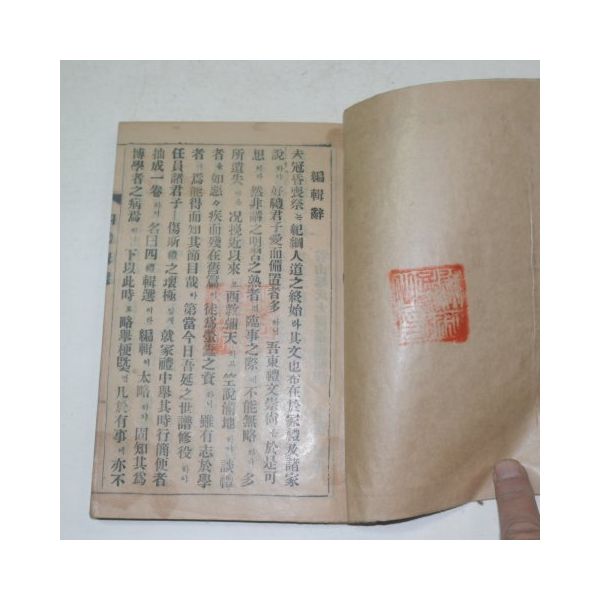 編輯辭
夫冠昏喪祭는紀綱人道之終始라其文也布在於家禮及諸家
說하야好禮君子愛而備置者多하니吾東禮文崇尙을於是可
想이라然非講之明習之熟者면臨事之際에不能無略하야多
所遺失이어든况挽近以來로西敎彌天하고
者를如惡々疾而殘在舊篇이徒爲蠹之資하니雖有志於學
者라도爲能得而知其節目哉아第當今日吾延之世譜修役하야
任員諸君子ㅣ傷斯禮之壞極일새就家禮中擧其時行簡便者
抽成一卷하야名曰四禮輯選이라編輯이太略하야固知其爲
博學者之病焉이나下以此時로略擧梗槩면凡於有事에亦不